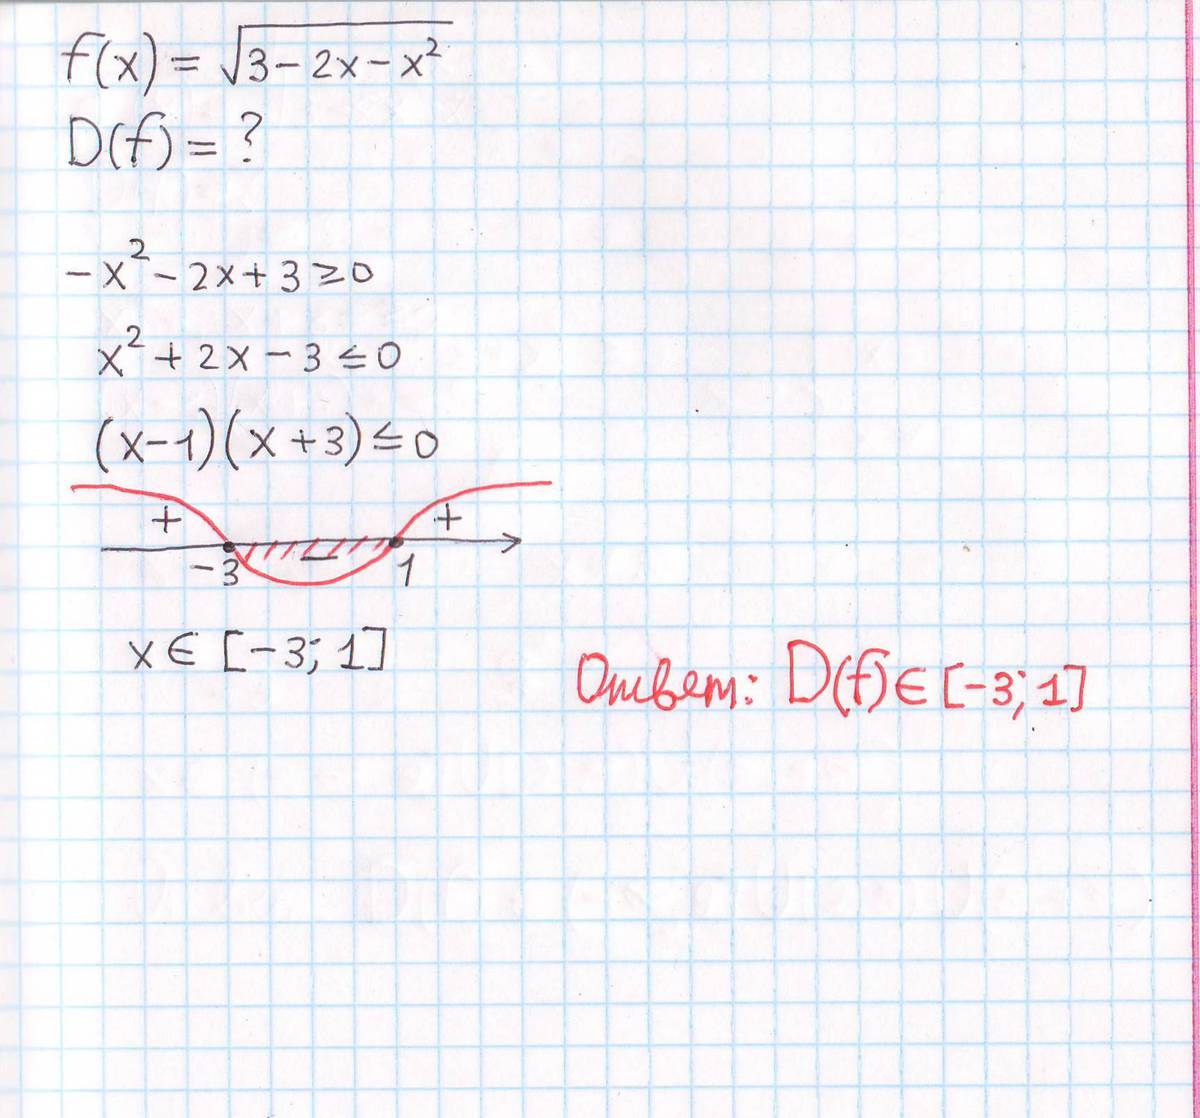 f(x) = √(3-2x-x²)
D(f) = ?
-x² - 2x + 3 ≥ 0
x² + 2x - 3 ≤ 0
(x-1)(x+3) ≤ 0
+ - +
-3 1
x ∈ [-3; 1]
Ответ: D(f) ∈ [-3; 1]